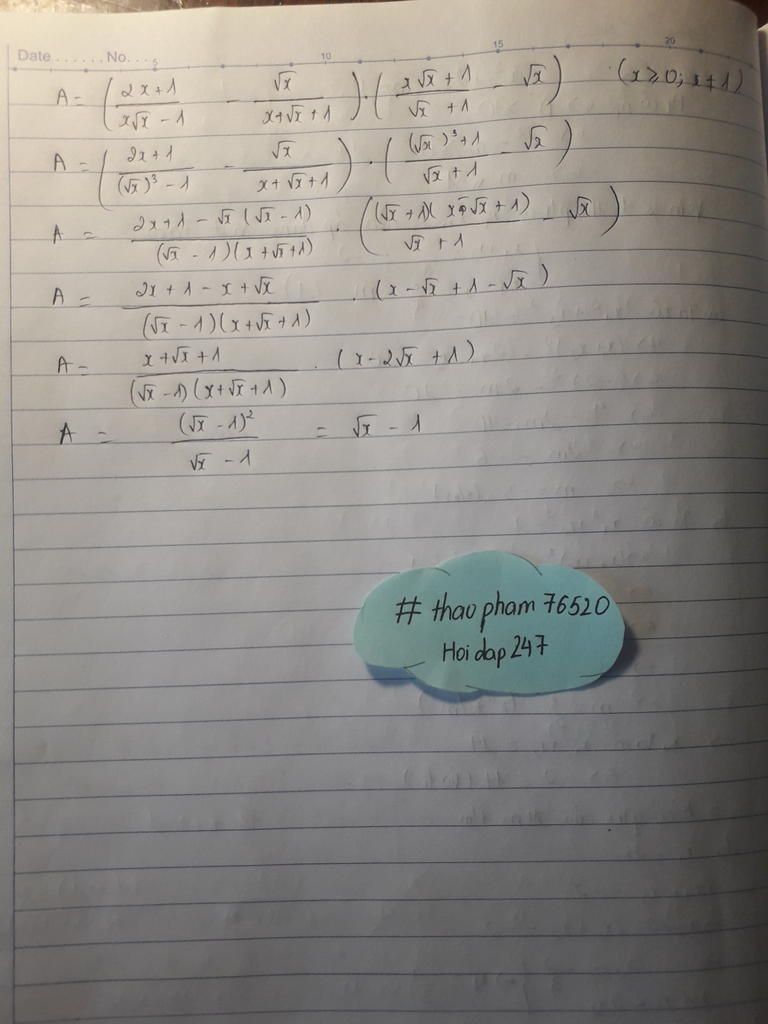 Date ...... No. ... 5 10 15 20
A = (2x+1 / x√x − 1 − √x / x+√x+1) · (x√x + 1 / √x + 1 − √x) (x ≥ 0; x ≠ 1)
A = (2x+1 / (√x)³ − 1 − √x / x+√x+1) · ((√x)³+1 / √x + 1 − √x)
A = 2x+1 − √x (√x − 1) / (√x − 1)(x+√x+1) · ((√x + 1)(x − √x + 1) / √x + 1 − √x)
A = 2x + 1 − x + √x / (√x − 1)(x+√x+1) . (x − √x + 1 − √x)
A = x+√x + 1 / (√x − 1)(x+√x+1) . (x − 2√x + 1)
A = (√x − 1)² / √x − 1 = √x − 1
# thao pham 76520
Hoi dap 247